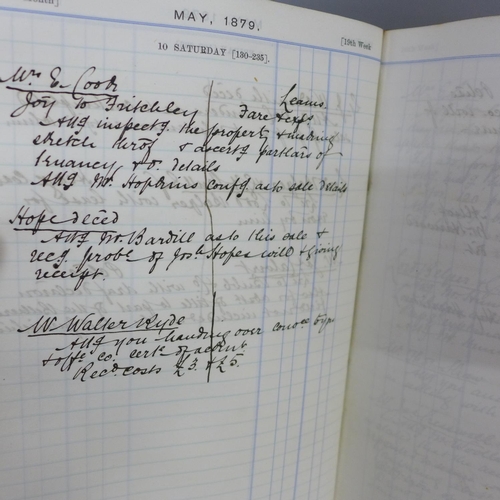 MAY, 1879.
10 SATURDAY [130-235].
[19th Week
Mrs E. Cook
Leams.
Joy to Fritchley Fare & exps
Attg inspectg the property & making
sketch therof & ascertg partlars of
tenancy & o. details
Attg Mr. Hopkins confg as to sale details
Hope deced
Attg Mr. Bardill as to this sale &
recg probe of Josh Hopes will & giving
receipt.
Mr Walter Ryde
Attg you handing over
& offl co. certe of
Recd costs £3. & £5.